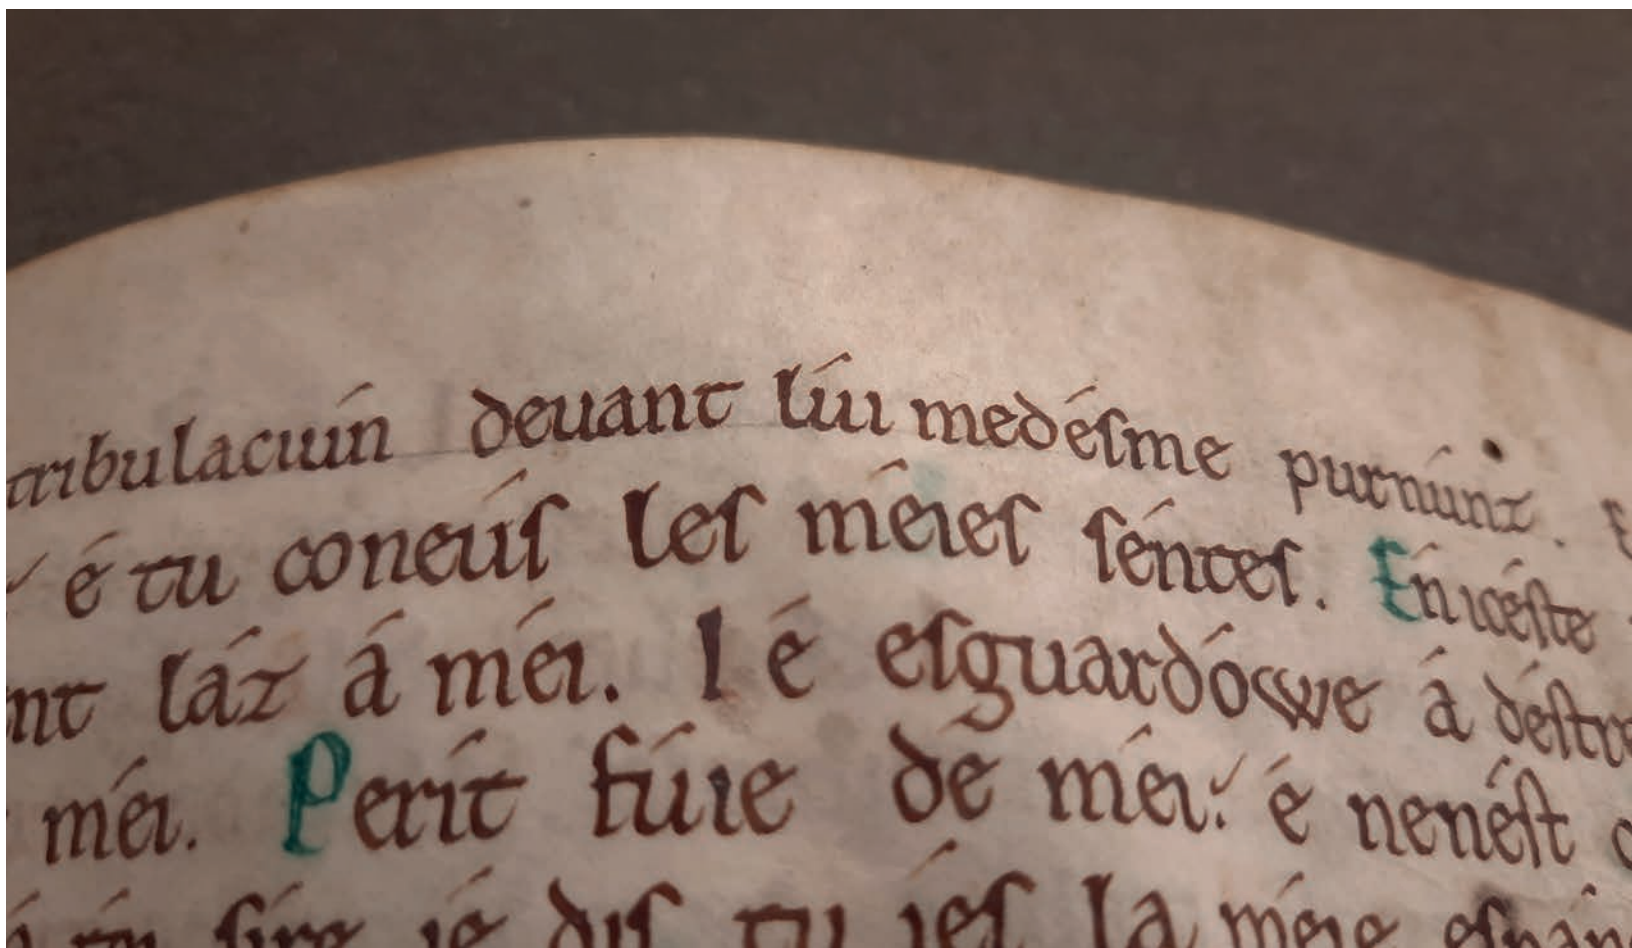 tribulaciuín deuant líu medésme purnúnt.
é tu coneúis les méies séntes. En icéste
nt láz á méi. I é esguardówe á déstre
méi. Perít fúie de méi: é nenést
síre ié dis tu iés la méie